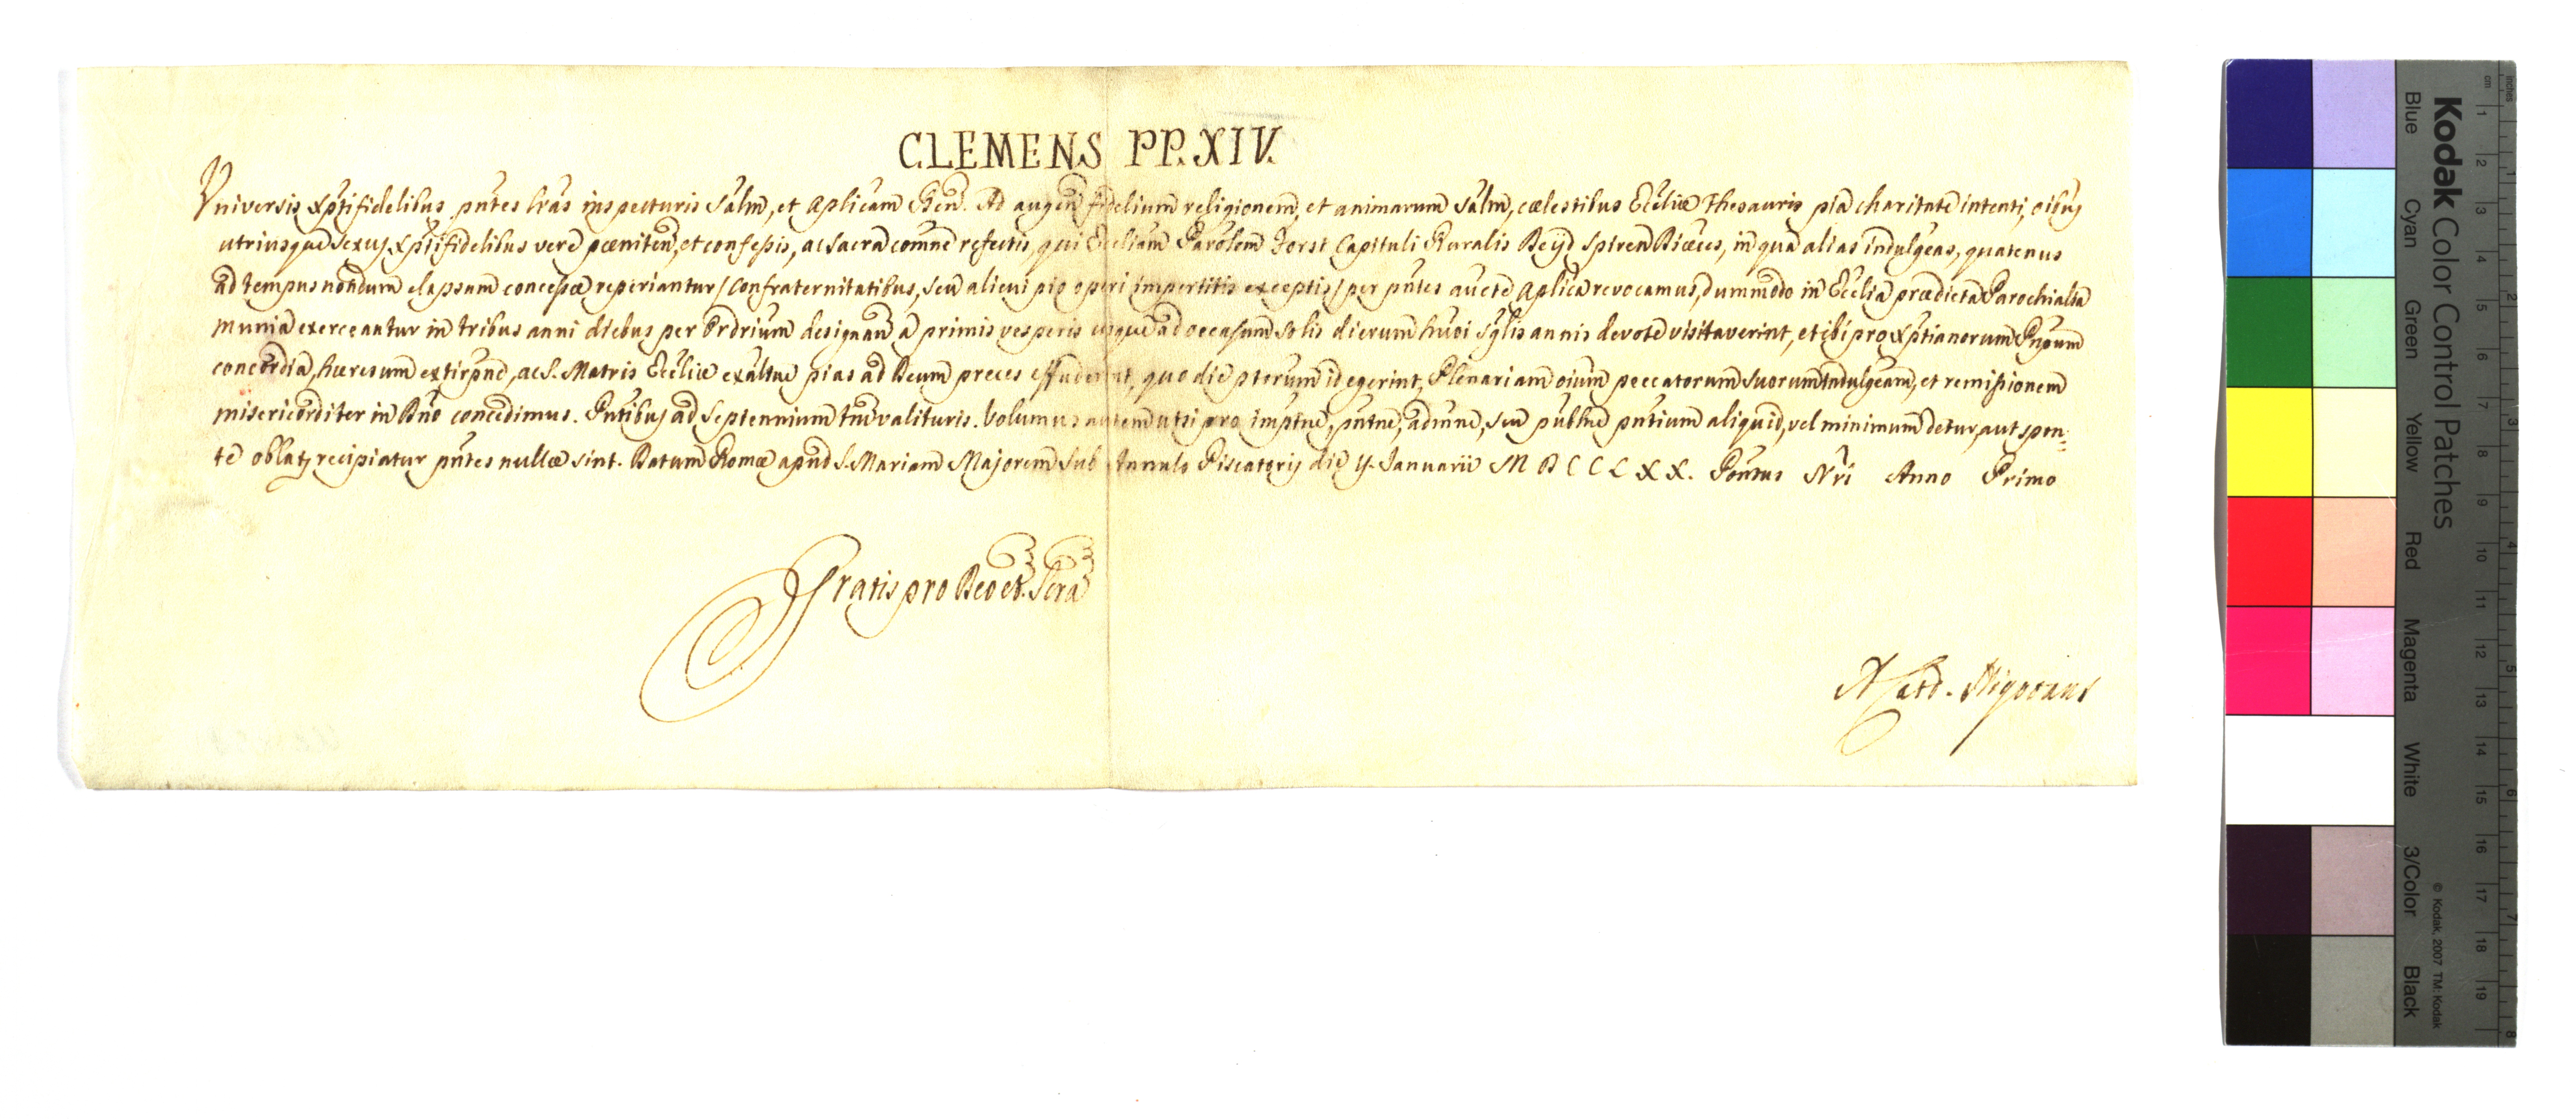 CLEMENS PP. XIV.
Universis Xp̃ifidelibus pñtes lr̃as inspecturis Sal̃m, et Aplicam Ben̄. Ad augen̄ fidelium religionem, et animarum sal̃m, cælestibus Ecc̃liæ Thesauris pia charitate intenti, oĩbus
utriusque sexus Xp̃ifidelibus vere pœniten̄, et confessis, ac sacra com̃ne refectis, qui Ecc̃liam Paroĺem Forst Capituli Ruralis Spiren Diæces, in qua alias indulgeas, quatenus
ad tempus nondum elapsum concessæ reperiantur / Confraternitatibus, seu alicui pio operi impertitis exceptis / per pñtes aucte Aplica revocamus, dummodo in Ecc̃lia prædicta Parochialia
munia exerceantur in tribus anni diebus per Ordrium designan̄ a primis vesperis usque ad occasum solis dierum hũoi sglis annis devote visitaverint, et ibi pro Xp̃tianorum Pñpum
concordia, hæresum extirpñe, ac S. Matris Ecc̃liæ exaltñe pias ad Deum preces effuderint, quo die pterum id egerint, Plenariam oĩum peccatorum suorum Indulgeam, et remissionem
misericorditer in Dño concedimus. Pñtibus ad Septennium tm̃ valituris. Volumus autem ut si pro impt̃ne, pñtne, admñe, seu pub̃ne pñtium aliquid, vel minimum detur, aut spon:
te oblatũ recipiatur pñtes nullæ sint. Datum Romæ apud S. Mariam Majorem sub Annulo Piscatoris die Januarii MDCCLXX. Pontus Nr̃i Anno Primo
Gratis pro Deo et Scrã
A Card. Nigronus
Kodak Color Control Patches
Blue Cyan Green Yellow Red Magenta White 3/Color Black
© Kodak, 2007 TM: Kodak
inches 1 2 3 4 5 6 7 8
cm 1 2 3 4 5 6 7 8 9 10 11 12 13 14 15 16 17 18 19